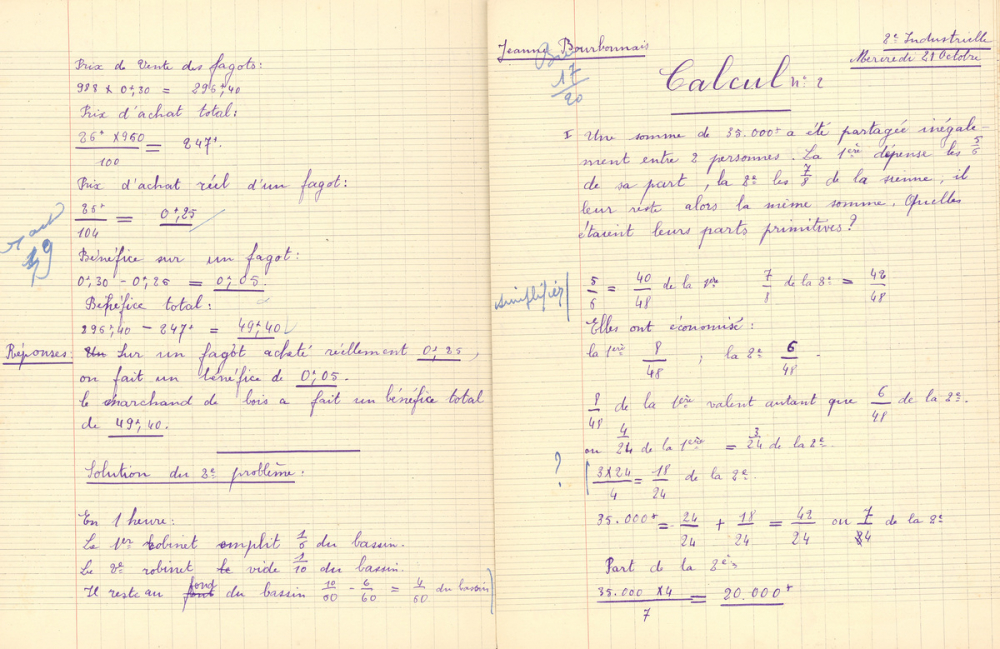 Prix de Vente des fagots:
988 x 0f,30 = 296f,40
Prix d'achat total:
26f x 950 / 100 = 247f.
Prix d'achat réel d'un fagot:
26f / 104 = 0f,25
Bénéfice sur un fagot:
0f,30 - 0f,25 = 0f,05.
Bénéfice total:
296f,40 - 247f = 49f,40
Réponses: Sur un fagot acheté réellement 0f,25,
on fait un bénéfice de 0f,05.
le marchand de bois a fait un bénéfice total
de 49f,40.
Solution du 2e problème.
En 1 heure:
Le 1er robinet emplit 1/6 du bassin.
Le 2e robinet le vide 1/10 du bassin.
Il reste au fond du bassin 10/60 - 6/60 = 4/60 du bassin
Jeanne Bourbonnais
2e Industrielle
Mercredi 21 Octobre
17/20
Calcul n° 2
I Une somme de 35.000f a été partagée inégale-
ment entre 2 personnes. La 1ère dépense les 5/6
de sa part, la 2e les 7/8 de la sienne, il
leur reste alors la même somme. Quelles
étaient leurs parts primitives?
simplifier
5/6 = 40/48 de la 1ère 7/8 de la 2e = 42/48
Elles ont économisé:
la 1ère 8/48 ; la 2e 6/48.
8/48 de la 1ère valent autant que 6/48 de la 2e.
ou 4/24 de la 1ère = 3/24 de la 2e.
? 3x24/4 = 18/24 de la 2e.
35.000f = 24/24 + 18/24 = 42/24 ou 7/4 de la 2e
Part de la 2e:
35.000 x 4 / 7 = 20.000f